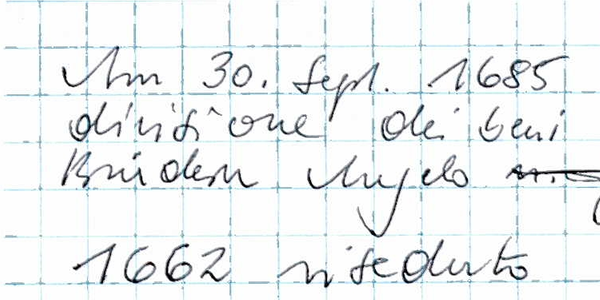 Am 30. Sept. 1685
divisione dei beni
Brüdern Angelo
1662 riseduto